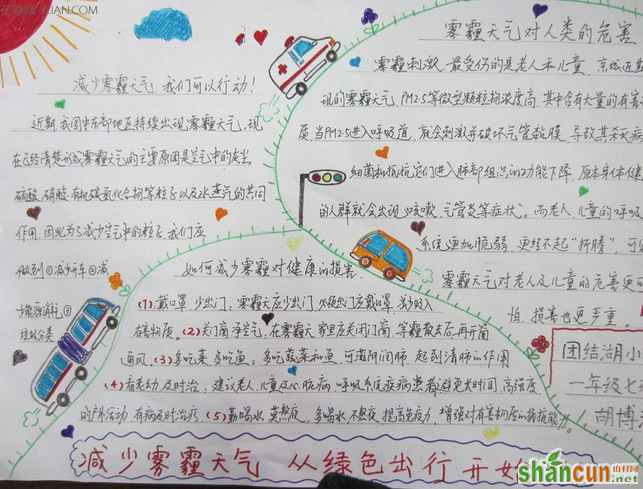 减少雾霾天气，我们可以行动！
近期我国中东部地区持续出现雾霾天气，现
在已经清楚形成雾霾天气的主要原因是空气中的灰尘、
硫酸、硝酸、有机碳氢化合物等粒子以及水蒸气的共同
作用，因此为了减少空气中的粒子，我们应
做到①减少开车②减
少燃放 ③
垃圾分类
雾霾天气对人类的危害
雾霾刺激，最受伤的是老人和儿童，京城近期
现的雾霾天气，PM2.5等微型颗粒物浓度高，其中含有大量的有害
质，当PM2.5进入呼吸道，就会刺激并破坏气管黏膜，导致其杀灭
细菌和抵抗它们进入肺部组织的功能下降，原本身体健
的人群就会出现"咳嗽、气管炎等症状"。而老人、儿童的呼吸
系统更加脆弱，更经不起"折腾"，可
雾霾天气对老人及儿童的危害更可
怕，损害也更严重。
如何减少雾霾对健康的损害
（1）戴口罩，少出门：雾霾天应少出门，必须出门应戴口罩，减少吸入
有害物质。（2）关门窗，净空气：在雾霾天，家里应关闭门窗，等霾散去后再开窗
通风。（3）多吃菜，多吃鱼：多吃蔬菜和鱼，可滋阴润肺，起到清肺的作用
（4）有老幼，及时治：建议老人、儿童及心脏病、呼吸系统疾病患者避免长时间、高强度
的户外活动，有病及时治疗。（5）勤喝水，莫熬夜：多喝水，不熬夜，提高免疫力，增强对有害物质的抵抗能力。
团结湖小
一年级七
胡博
减少雾霾天气 从绿色出行开始
shancun.net
山村网